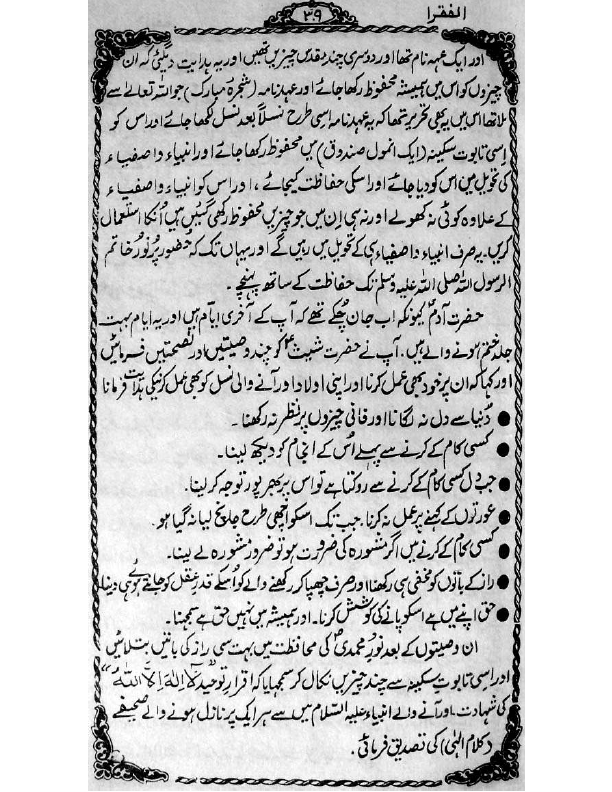 الفقرا
۳۹
اور ایک عہد نام تھا اور دوسری چند مقدس چیزیں تھیں اور یہ ہدایت دیگئی کہ ان
چیزوں کو اس میں ہمیشہ محفوظ رکھا جائے اور عہد نامہ (شجرۂ مبارک) جو اللہ تعالے سے
ملا تھا اس میں یہ بھی تحریر تھا کہ یہ عہد نامہ اسی طرح نسلاً بعد نسل لکھا جائے اور اس کو
اسی تابوت سکینہ (ایک انمول صندوق) میں محفوظ رکھا جائے اور انبیاء و اصفیاء
کی تحویل میں اس کو دیا جائے اور اسکی حفاظت کیجائے ، اور اس کو انبیاء و اصفیاء
کے علاوہ کوئی نہ کھولے اور نہ ہی اِن میں جو چیزیں محفوظ رکھی گئیں ہیں اُنکا استعمال
کریں۔ یہ صرف انبیاء و اصفیاء ہی کے تحویل میں رہیں گے اور یہاں تک کہ حضور پُر نُور خاتم
الرسول اللہ صلی اللہ علیہ وسلم تک حفاظت کے ساتھ پہنچے۔
حضرت آدمؑ کیونکہ اب جان چکے تھے کہ آپ کے آخری ایام ہیں اور یہ ایام بہت
جلد ختم ہونے والے ہیں۔ آپ نے حضرت شیثؑ کو چند وصیتیں اور نصیحتیں فرمائیں
اور کہا کہ ان پر خود بھی عمل کرنا اور اپنی اولاد اور آنے والی نسل کو بھی عمل کرنیکی ہدایت فرمانا
● دُنیا سے دل نہ لگانا اور فانی چیزوں پر نظر نہ رکھنا۔
● کسی کام کے کرنے سے پہلے اُس کے انجام کو دیکھ لینا۔
● جب دل کسی کام کے کرنے سے روکتا ہے تو اس پر بھرپور توجہ کر لینا۔
● عورتوں کے کہنے پر عمل نہ کرنا۔ جب تک اسکو اچھی طرح جانچ لیا نہ گیا ہو۔
● کسی کام کے کرنے میں اگر مشورہ کی ضرورت ہو تو ضرور مشورہ لے لینا۔
● راز کے باتوں کو مخفی ہی رکھنا اور صرف چھپا کر رکھنے والے کو اُسکے قدرِ عقل کو جانتے ہوئے ہی دینا
● حق اپنے میں ہے اسکو پانے کی کوشش کرنا۔ اور ہمیشہ میں نہیں حق ہے سمجھنا۔
ان وصیتوں کے بعد نورِ محمدیؐ کی محافظت میں بہت سی راز کی باتیں بتلائیں
اور اسی تابوت سکینہ سے چند چیزیں نکال کر سمجھایا کہ اقرارِ توحید "لَا اِلٰہَ اِلَّا اللہُ"
کی شہادت۔ اور آنے والے انبیاء علیہ السّلام میں سے ہر ایک پر نازل ہونے والے صحیفے
(کلام الٰہی) کی تصدیق فرمائی۔